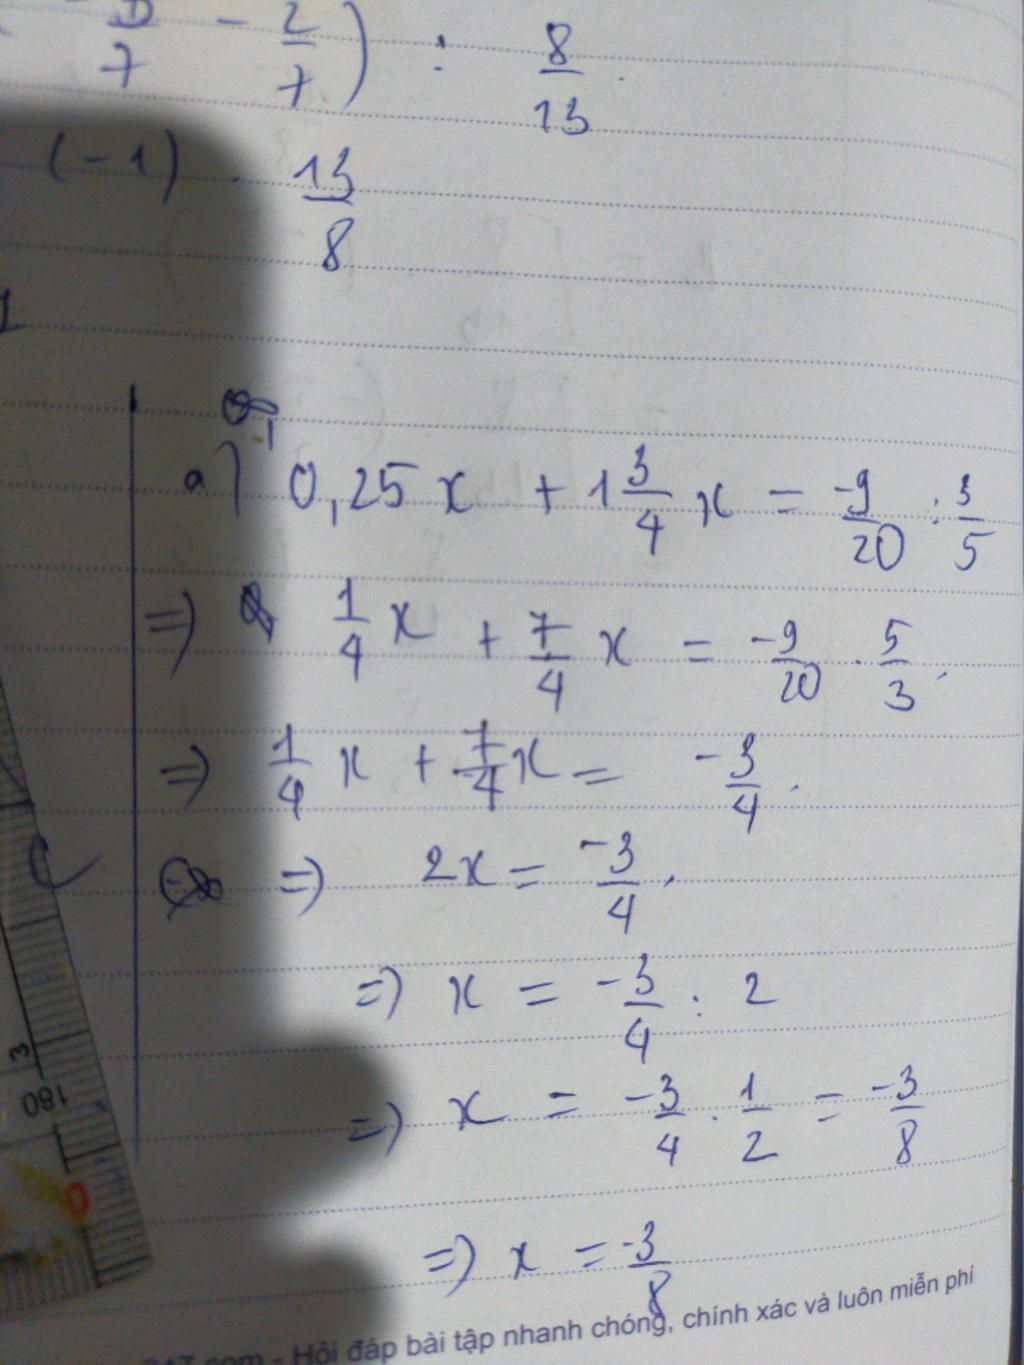 7 - 2/7) : 8/13
(-1) . 13/8
a) 0,25x + 1 3/4 x = -9/20 : 3/5
=) 1/4 x + 7/4 x = -9/20 . 5/3
=) 1/4 x + 7/4 x = -3/4
=) 2x = -3/4
=) x = -3/4 : 2
=) x = -3/4 . 1/2 = -3/8
=) x = -3/8
3
180
0
.com - Hỏi đáp bài tập nhanh chóng, chính xác và luôn miễn phí